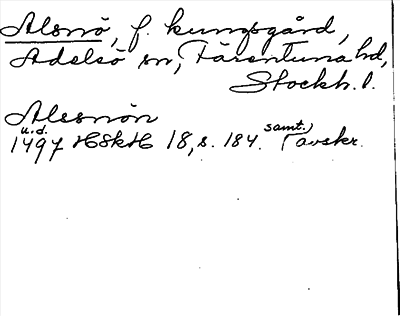 Alsnö, f. kungsgård,
Adelsö sn, Färentuna hd,
Stockh. l.
Alessnön
u.d. samt.)
1497 HSkH 18, s. 184. (avskr.